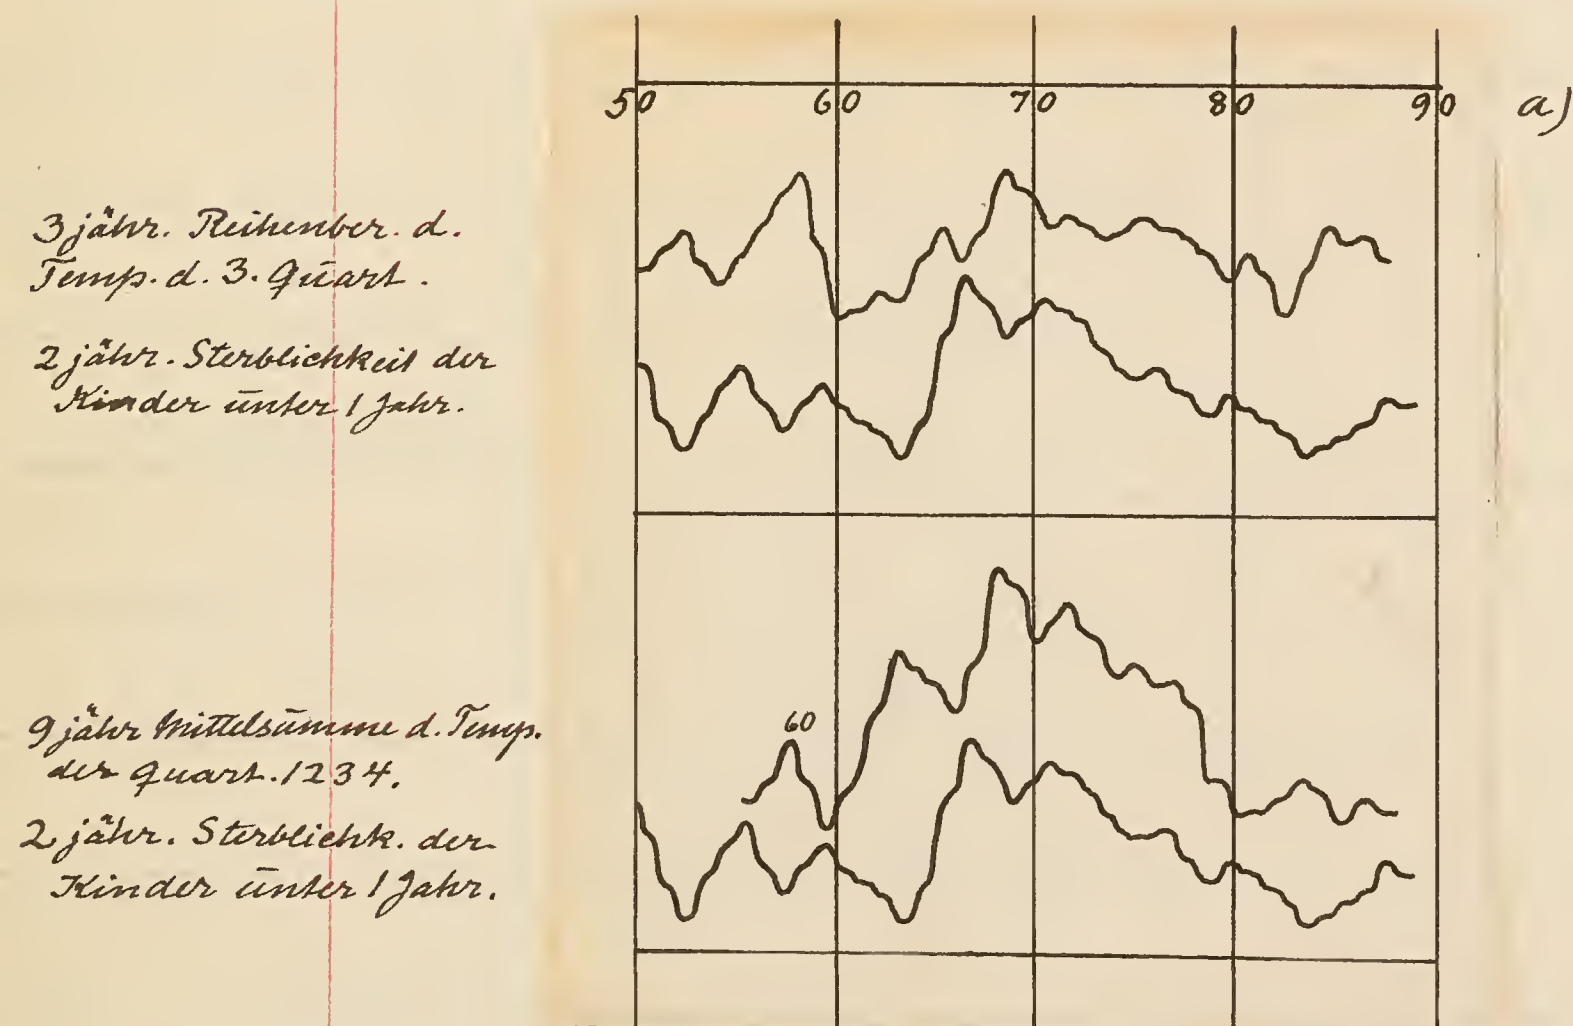 50 60 70 80 90 a)
3 jähr. Reihenber. d.
Temp. d. 3. Quart.
2 jähr. Sterblichkeit der
Kinder unter 1 Jahr.
60
9 jähr Mittelsumme d. Temp.
der Quart. 1234.
2 jähr. Sterblichk. der
Kinder unter 1 Jahr.